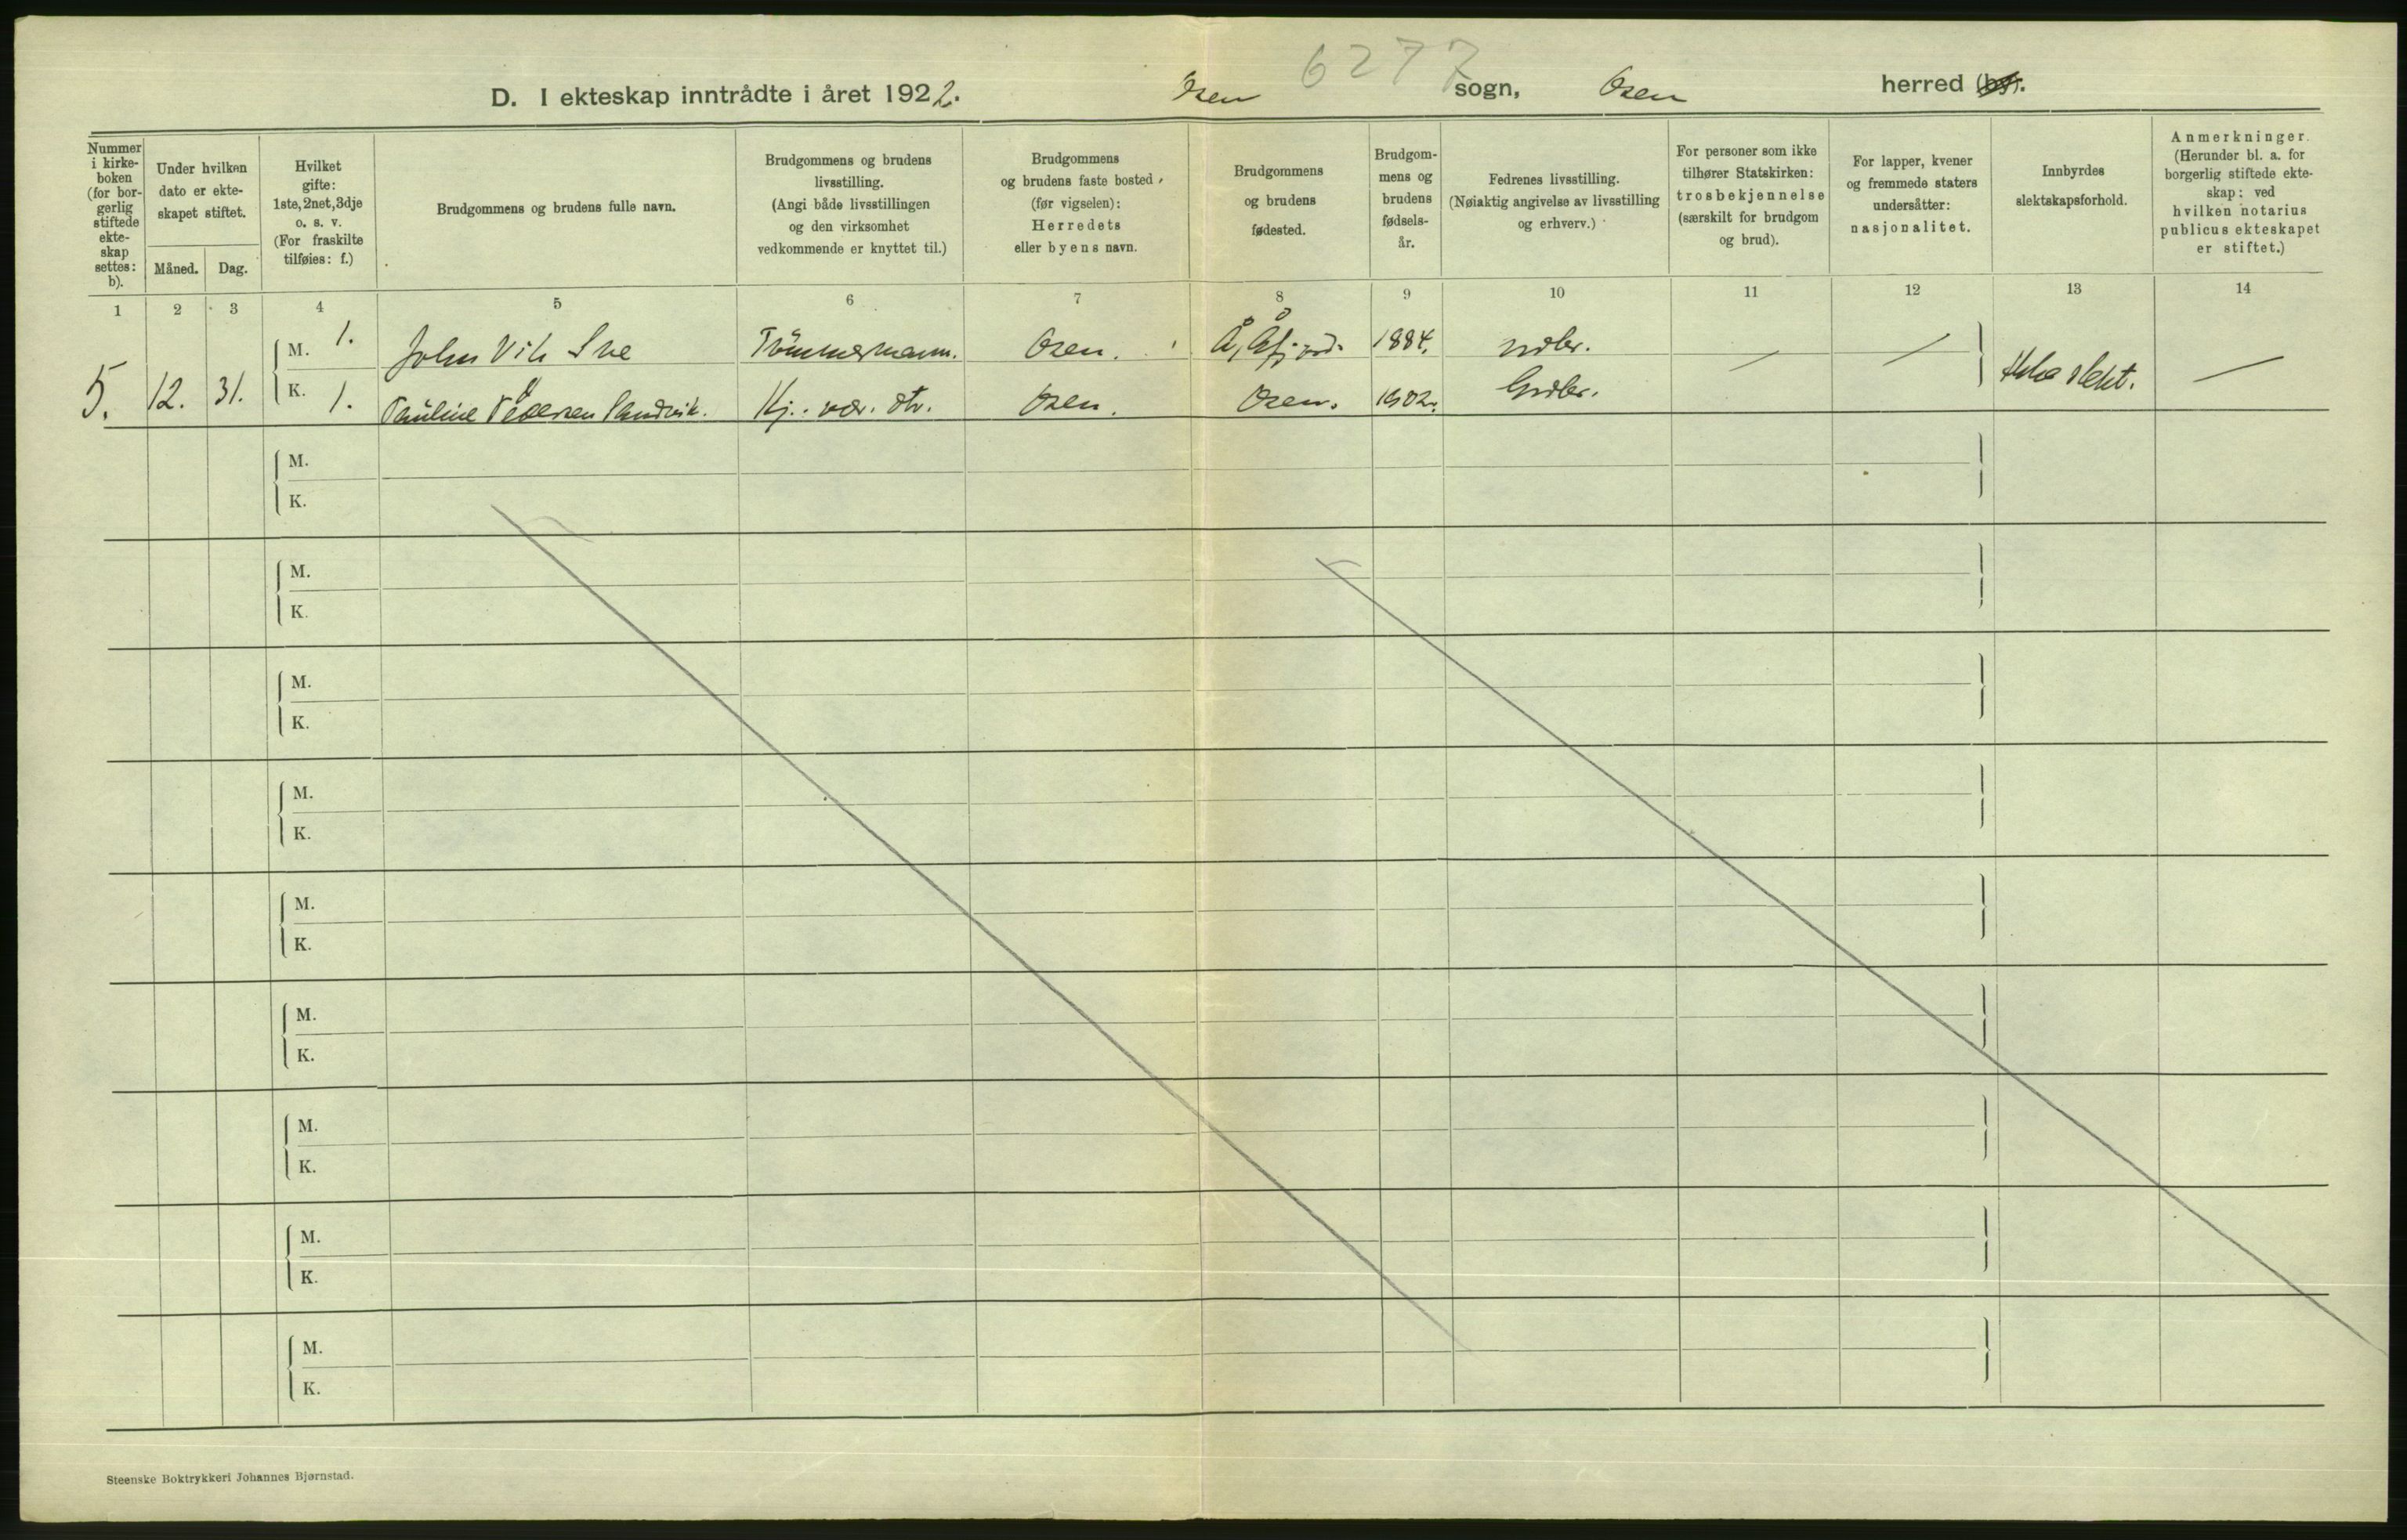 6277
D. I ekteskap inntrådte i året 1922. Osen sogn, Osen herred (by).
Nummer i kirkeboken (for borgerlig stiftede ekteskap settes: b).
Under hvilken dato er ekteskapet stiftet.
Måned. Dag.
Hvilket gifte: 1ste, 2net, 3dje o. s. v. (For fraskilte tilføies: f.)
Brudgommens og brudens fulle navn.
Brudgommens og brudens livsstilling. (Angi både livsstillingen og den virksomhet vedkommende er knyttet til.)
Brudgommens og brudens faste bosted (før vigselen): Herredets eller byens navn.
Brudgommens og brudens fødested.
Brudgommens og brudens fødselsår.
Fedrenes livsstilling. (Nøiaktig angivelse av livsstilling og erhverv.)
For personer som ikke tilhører Statskirken: trosbekjennelse (særskilt for brudgom og brud).
For lapper, kvener og fremmede staters undersåtter: nasjonalitet.
Innbyrdes slektskapsforhold.
Anmerkninger. (Herunder bl. a. for borgerlig stiftede ekteskap: ved hvilken notarius publicus ekteskapet er stiftet.)
1 2 3 4 5 6 7 8 9 10 11 12 13 14
M. 1. John Vik Sve Tømmermann. Osen. Å, Åfjord. 1884. — —
5. 12. 31. K. 1. Pauline Pedersen Sandvik. Kj. vær. dtr. Osen. Osen. 1902. Grdbr. Ikke slekt. —
M.
K.
M.
K.
M.
K.
M.
K.
M.
K.
M.
K.
M.
K.
M.
K.
M.
K.
Steenske Boktrykkeri Johannes Bjørnstad.